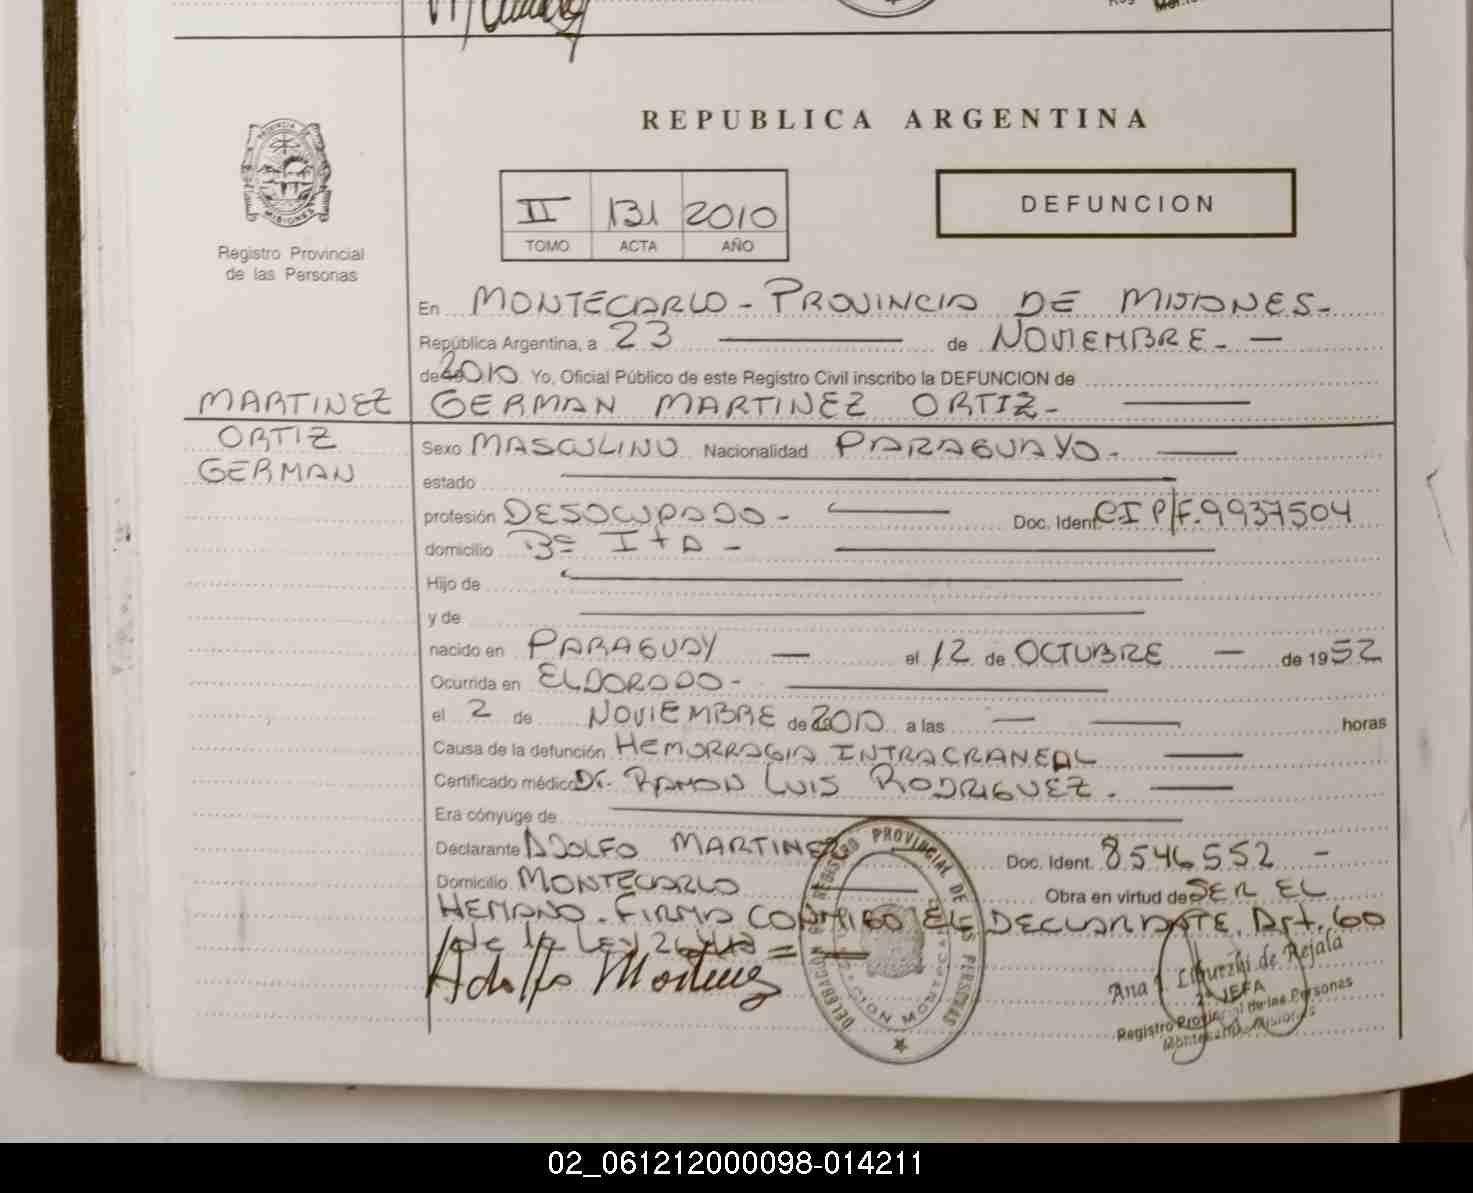 REPUBLICA ARGENTINA
PROVINCIA DE MISIONES
Registro Provincial
de las Personas
II 131 2010
TOMO ACTA AÑO
DEFUNCION
En MONTECARLO - PROVINCIA DE MISIONES -
República Argentina, a 23 de NOVIEMBRE -
de 2010 Yo, Oficial Público de este Registro Civil inscribo la DEFUNCION de
MARTINEZ
ORTIZ
GERMAN
GERMAN MARTINEZ ORTIZ -
Sexo MASCULINO Nacionalidad PARAGUAYO -
estado
profesión DESOCUPADO - Doc. Ident. CI P/F. 9937504
domicilio Bº Ita -
Hijo de
y de
nacido en PARAGUAY - el 12 de OCTUBRE - de 1952
Ocurrida en ELDORADO -
el 2 de NOVIEMBRE de 2010 a las - horas
Causa de la defunción HEMORRAGIA INTRACRANEAL
Certificado médico Dr. RAMON LUIS RODRIGUEZ.
Era cónyuge de
Declarante ADOLFO MARTINEZ Doc. Ident. 8546552 -
Domicilio MONTECARLO Obra en virtud de SER EL
HEMANO. FIRMA CONMIGO EL DECLARANTE. Art. 60
de la Ley
Adolfo Martinez
DELEGACION REGISTRO PROVINCIAL DE LAS PERSONAS
Ana de Rejala
JEFA
Registro Provincial de las Personas
Montecarlo - Misiones
02_061212000098-014211